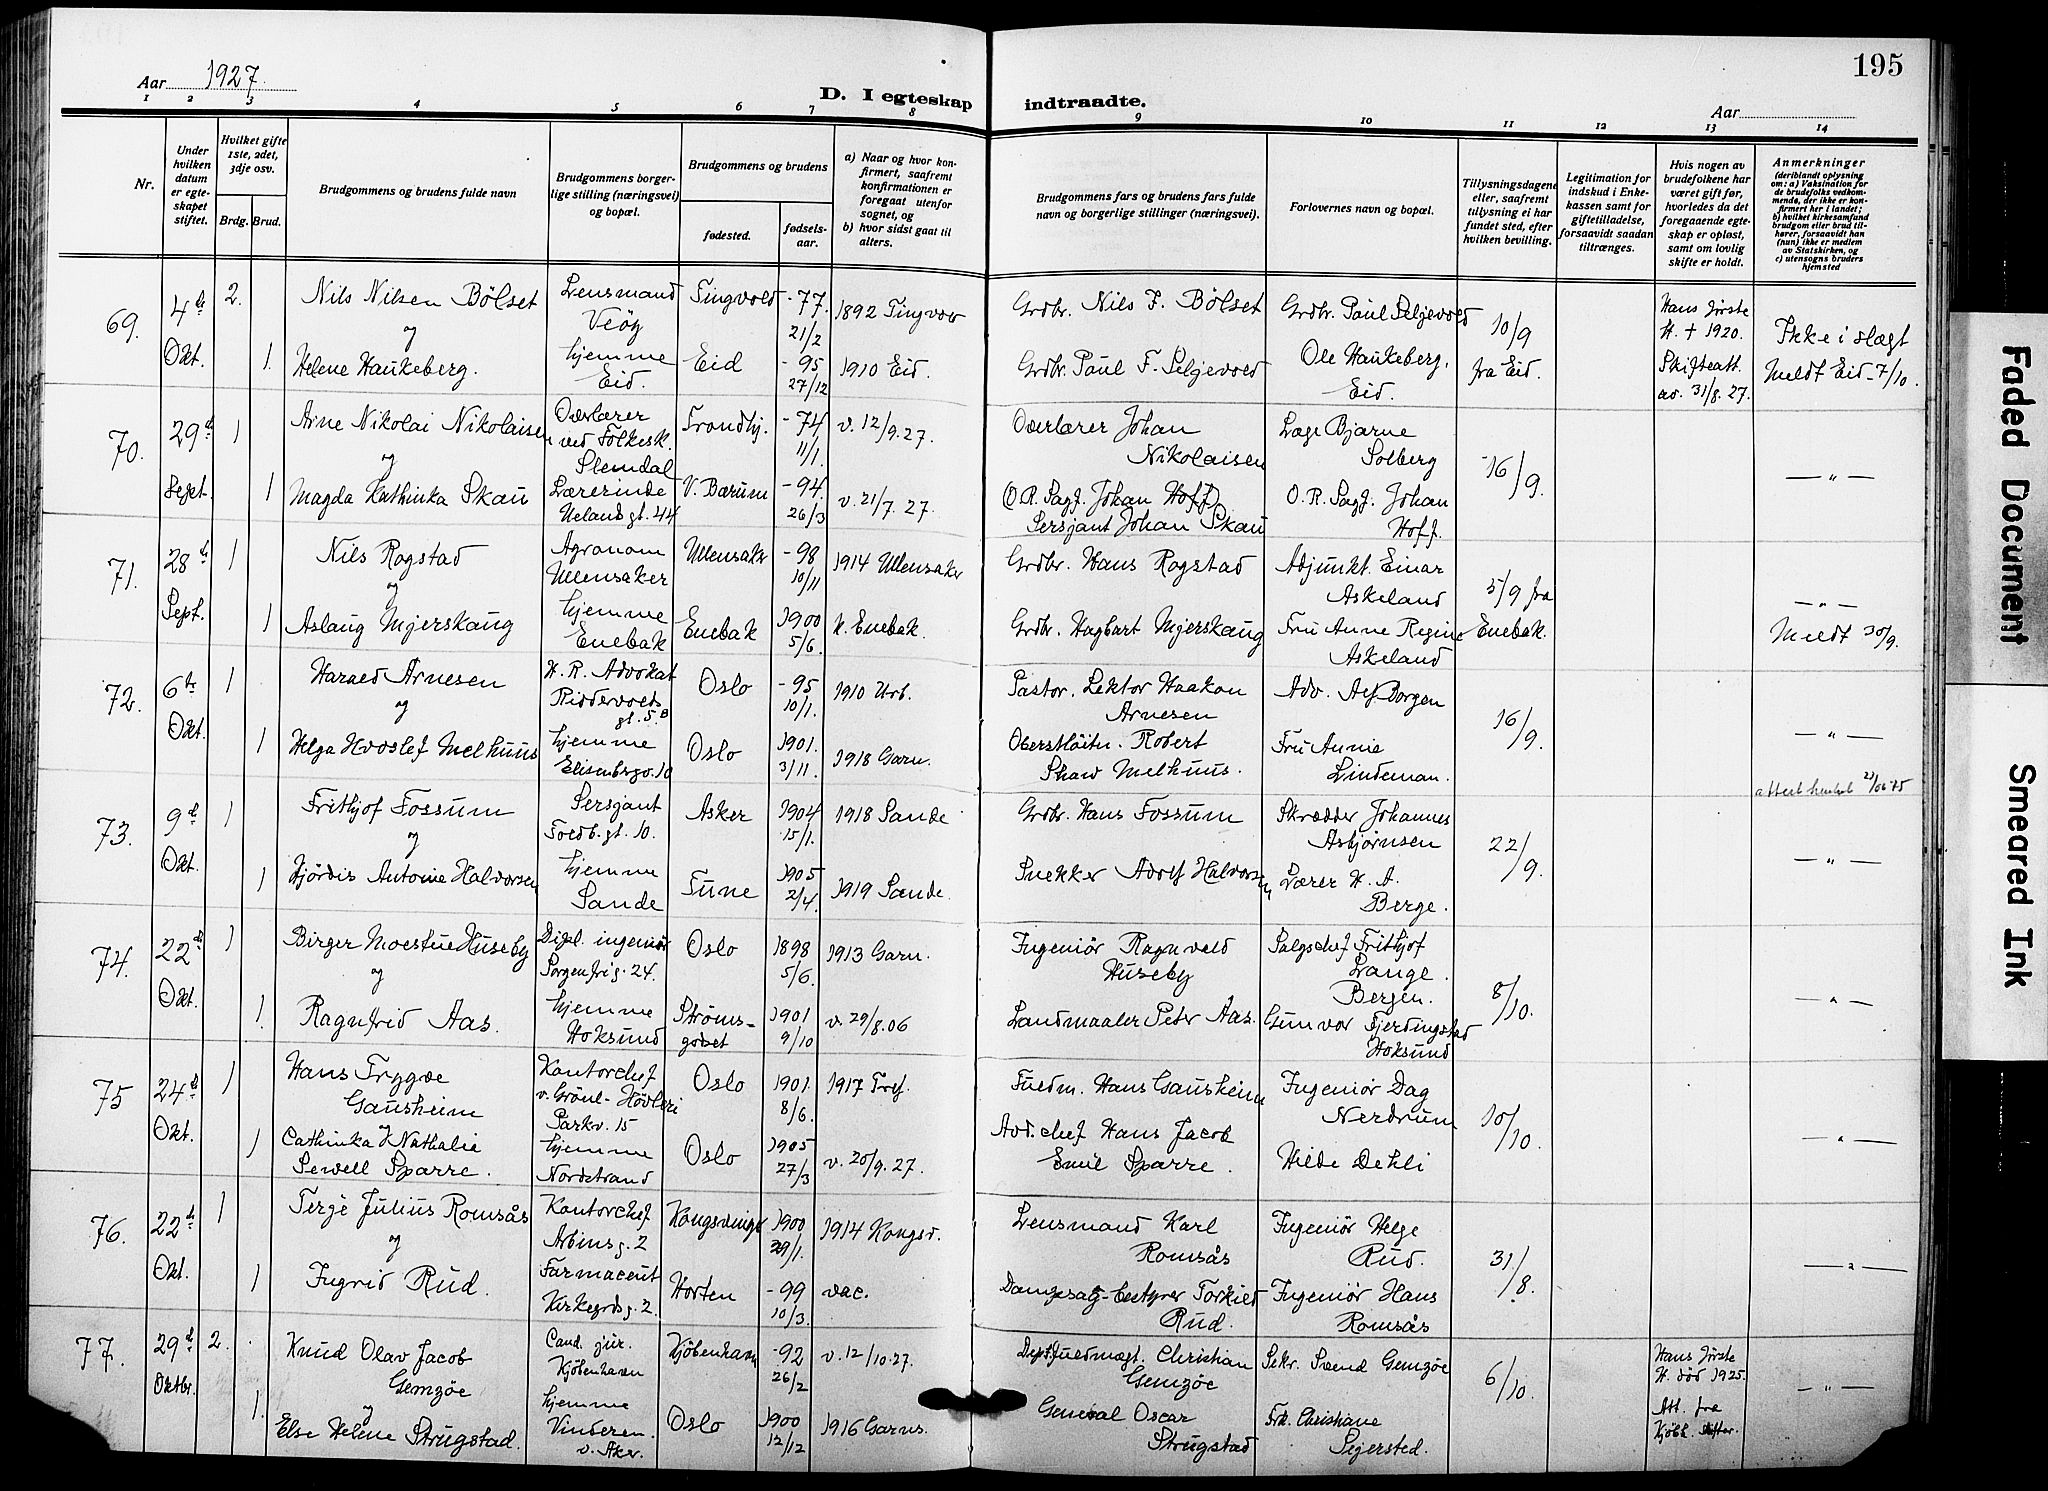 195
Aar 1927.
D. I egteskap indtraadte.
Aar
1 2 3 4 5 6 7 8 9 10 11 12 13 14
Nr.
Under hvilken datum er egteskapet stiftet.
Hvilket gifte 1ste, 2det, 3dje osv.
Brdg. Brud.
Brudgommens og brudens fulde navn
Brudgommens borgerlige stilling (næringsvei) og bopæl.
Brudgommens og brudens
fødested.
fødselsaar.
a) Naar og hvor konfirmert, saafremt konfirmationen er foregaat utenfor sognet, og
b) hvor sidst gaat til alters.
Brudgommens fars og brudens fars fulde navn og borgerlige stillinger (næringsvei).
Forlovernes navn og bopæl.
Tillysningsdagene eller, saafremt tillysning ei har fundet sted, efter hvilken bevilling.
Legitimation for indskud i Enkekassen samt for giftetilladelse, forsaavidt saadan tiltrænges.
Hvis nogen av brudefolkene har været gift før, hvorledes da det foregaaende egteskap er opløst, samt om lovlig skifte er holdt.
Anmerkninger (deriblandt oplysning om: a) Vaksination for de brudefolks vedkommende, der ikke er konfirmert her i landet; b) hvilket kirkesamfund brudgom eller brud tilhører, forsaavidt han (hun) ikke er medlem av Statskirken, og c) utensogns bruders hjemsted
69. 4de Okt. 2.
Nils Nilsen Bölset
Lensmand Veöy
Tingvold
-77. 21/2
1892 Tingvor
Grdbr. Nils F. Bölset
Grdbr. Paul Seljevold
10/9 fra Eid.
Hans första H. + 1920. Skifteatt. av. 31/8. 27.
Ikke i slægt
Meldt Eid - 7/10.
og
1. Helene Haukeberg.
hjemme Eid.
Eid
-95 27/12
1910 Eid.
Grdbr. Paul F. Seljevold
Ole Haukeberg, Eid.
70. 29de Sept. 1
Arne Nikolai Nikolaisen
Overlærer ved Folkesk. Slemdal
Trondhj.
-74 11/1.
v. 12/9. 27.
Overlærer Johan Nikolaisen
Læge Bjarne Solberg
16/9.
— " —
og
1 Magda Kathinka Skau
Lærerinde Uelands gt. 44
V. Bærum
-94. 26/3
v. 21/7. 27.
(O. R. Sagf. Johan Hoff)
Sersjant Johan Skau
O. R. Sagf. Johan Hoff.
71. 28de Sept. 1
Nils Rogstad
Agronom Ullensaker
Ullensakr
-98 10/11
1914 Ullensaker
Grdbr. Hans Rogstad
Adjunkt. Einar Askeland
5/9 fra Enebak.
— " —
og
1 Aslaug Mjerskaug
hjemme Enebak
Enebak
1900 5/6.
k. Enebak.
Grdbr. Hagbart Mjerskaug
Fru Anne Regine Askeland
Meldt 30/9.
72. 6te Okt. 1
Harald Arnesen
H. R. Advokat Riddervolds gt. 5.B
Oslo
-95 10/1.
1910 Urb.
Pastor. Lektor Haakon Arnesen
Adv. Alf Borgen
16/9.
— " —
og
1 Helga Hvoslef Melhuus
hjemme Elisenbergv. 10
Oslo
1901. 3/11.
1918 Garn.
Oberstlöitn. Robert Shaw Melhuus.
Fru Annie Lindeman.
73. 9de Okt. 1
Frithjof Fossum
Sersjant Toldb. gt. 10.
Asker
1904 15/1.
1918 Sande
Grdbr. Hans Fossum
Skrædder Johannes Asbjørnsen
22/9.
— " —
og
1 Hjördis Antonie Halvorsen
hjemme Sande
Tune
1905 2/4.
1919 Sande.
Snekker Adolf Halvorsen
Lærer H. A. Berge.
74. 22de Okt. 1
Birger Moestue Huseby
Dipl. ingeniør Sorgenfrig. 24.
Oslo
1898 5/6.
1913 Garn.
Ingeniör Ragnvald Huseby
Salgschef Frithjof Lange. Bergen.
8/10.
— " —
og
1. Ragnfrid Aas.
hjemme Hoksund
Strömsgodset
1901 9/10
v. 29/8. 06
Landmaaler Peter Aas.
Gunvor Fjerdingstad Hoksund
75 24de Okt. 1
Hans Trygve Gausheim
Kontorchef v. Grönl-Hövleri Parkv. 15
Oslo
1901. 8/6.
1917 Tref.
Fuldm. Hans Gausheim
Ingeniör Dag Nerdrum
10/10.
— " —
og
1 Cathinka Nathalie Sewell Sparre.
hjemme Nordstrand
Oslo
1905 27/3
v. 20/9. 27.
Avd. chef Hans Jacob Emil Sparre.
Hilde Dehli
76. 22de Okt. 1
Terje Julius Romsås
Kontorchef Arbins g. 2
Kongsvinger
1900 29/1.
1914 Kongsv.
Lensmand Karl Romsås
Ingeniör Helge Rud.
31/8.
— " —
og
1 Ingrid Rud.
Farmaceut Kirkegrds g. 2.
Horten
-99 10/3.
vac.
Dampsag-bestyrer Torkild Rud.
Ingeniör Hans Romsås
77. 29de Oktbr. 2.
Knud Olav Jacob Gemzöe
Cand. jur. Kjöbenhavn
Kjöbenhavn
-92 26/2
v. 12/10. 27.
Dept.fuldmægt. Christian Gemzöe
Sekr. Svend Gemzöe
6/10.
Hans förste H. död 1925.
Att. fra Kjöbh. Skifter.
— " —
og
1. Else Helene Strugstad.
hjemme Vinderen. v. Aker.
Oslo
1900 12/12
1916 Garns.
General Oscar Strugstad
Frk. Christiane Sejersted.
Faded Document
Smeared Ink